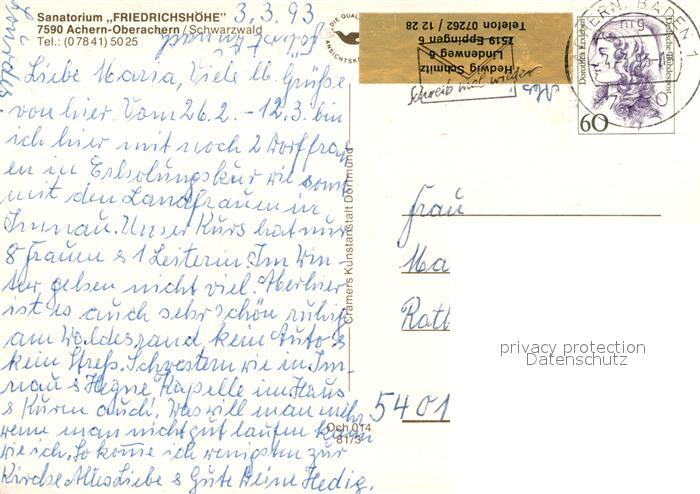 Sanatorium „FRIEDRICHSHÖHE" 3.3.93
7590 Achern-Oberachern / Schwarzwald
Tel.: (07841) 5025
Liebe Maria, Viele lb. Grüße
von hier. Vom 26.2. – 12.3. bin
ich hier mit noch 2 Dorffrau
en in Erholungskur wie sonst
mit den Landfrauen in
Imnau. Unser Kurs hat nur
8 Frauen & 1 Leiterin. Im Win-
ter gehen nicht viel. Aber hier
ist es auch sehr schön ruhig
am Waldesrand kein Auto &
kein Streß. Schwestern wie in Im-
nau & Hegne Kapelle im Haus
& Kuren auch. Was will man mehr
wenn man nicht gut laufen kann
wie ich. So komme ich wenigsten zur
Kirche. Alles Liebe & Gute Deine Hedig.
Cramers Kunstanstalt Dortmund
Och 014
81/3
Hedwig Schmitz
Lindenweg 6
7519 Eppingen 6
Telefon 07262 / 12 28
Schreib mal wieder
ACHERN, BADEN 1
Dorothea Erxleben
Deutsche Bundespost
60
Frau
Ma
Rath
5401
privacy protection
Datenschutz